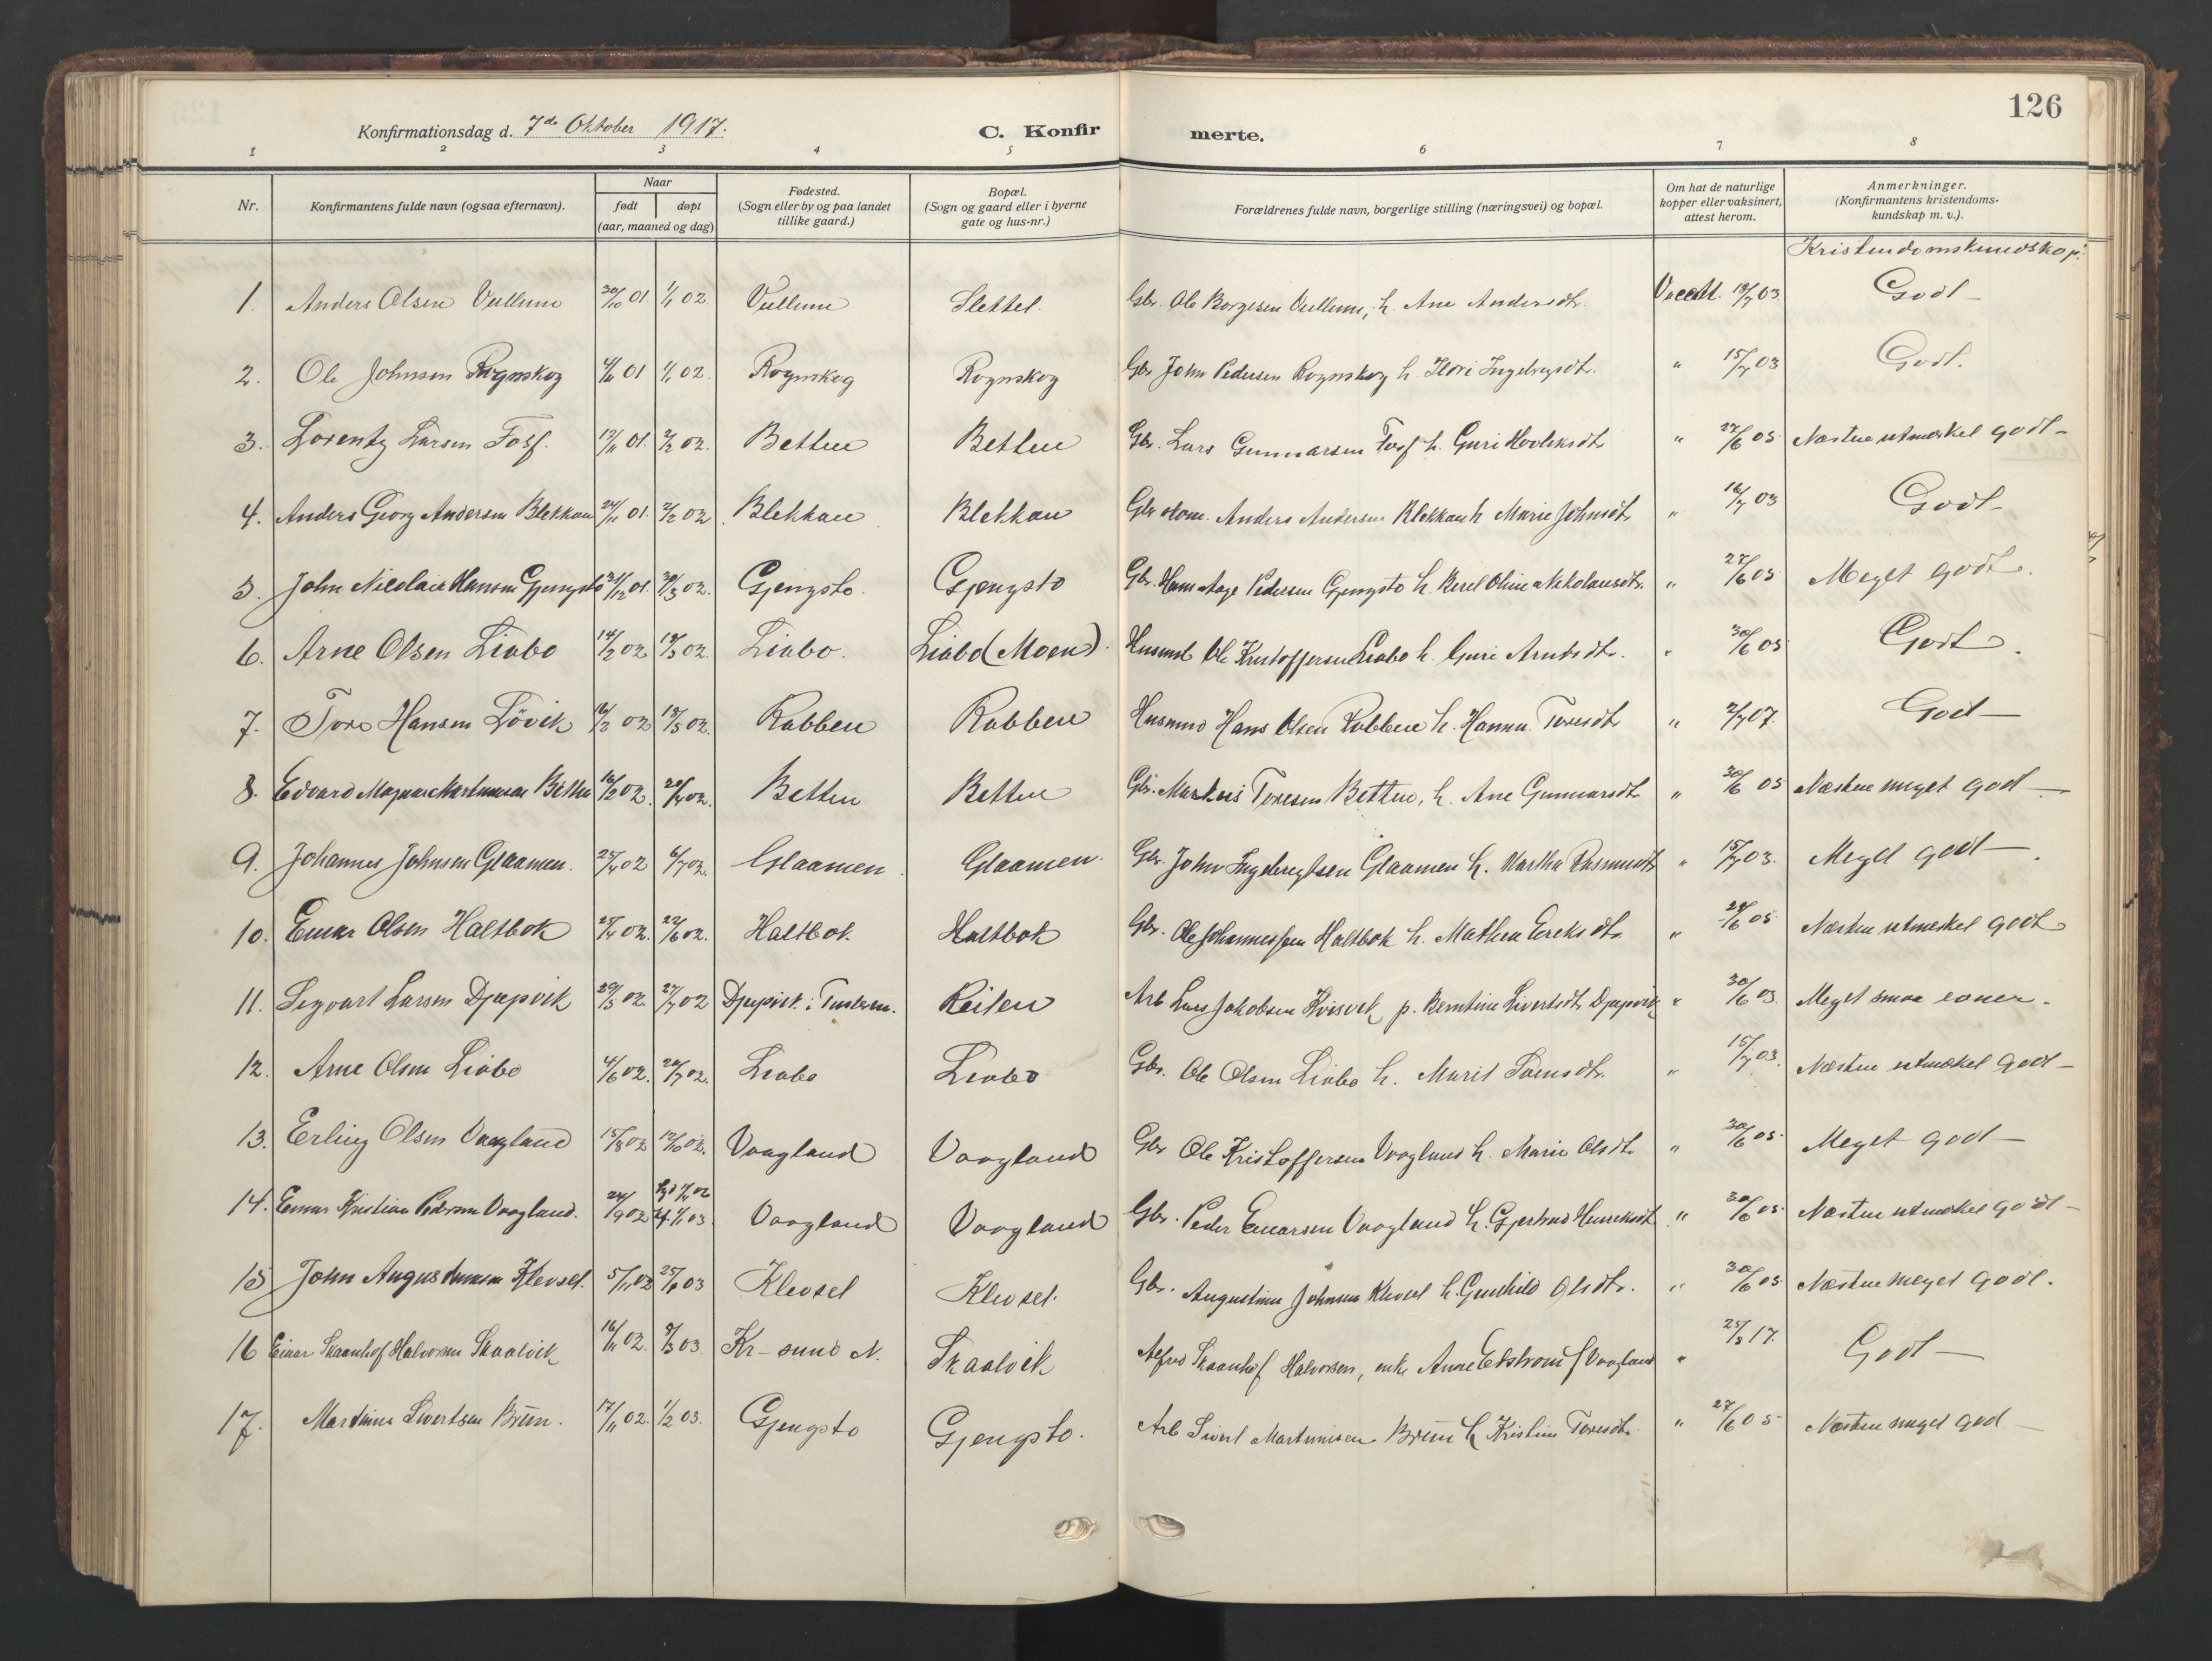 126
Konfirmationsdag d. 7de Oktober 1917. C. Konfirmerte.
1 2 3 4 5 6 7 8
Nr. Konfirmantens fulde navn (ogsaa efternavn). Naar født døpt (aar, maaned og dag) Fødested. (Sogn eller by og paa landet tillike gaard.) Bopæl. (Sogn og gaard eller i byerne gate og hus-nr.) Forældrenes fulde navn, borgerlige stilling (næringsvei) og bopæl. Om hat de naturlige kopper eller vaksinert, attest herom. Anmerkninger. (Konfirmantens kristendomskundskap m. v.).
Kristendomskundskap:
1. Anders Olsen Vullum 30/10 01. 1/1 02. Vullum Slettet. Gbr. Ole Borgesen Vullum, h. Ane Andersdt. 18/7 03. Godt
2. Ole Johnsen Rognskog 4/11 01 1/1 02. Rognskog Rognskog Gbr John Pedersen Rognskog h. Ingebrigtdt. " 15/7 03 Godt.
3. Lorentz Larsen Foss. 17/11 01. 2/2 02. Betten Betten Gbr. Lars Gunnarsen Foss h. Guri " 27/6 05 Næsten utmerket godt
4. Anders Georg Andersen Blekkan 24/11 01. 2/2 02 Blekkan Blekkan Gbr Anders Andersen Blekkan h Marie Johnsdt " 16/7 03 Godt
5. John Nicolai Hansen Gjengsto 31/12 01. 30/3 02. Gjengsto. Gjengsto Gbr. Hans Aage Pedersen Gjengsto h. Beret Oline Nikolausdt. " 27/6 05 Meget godt.
6. Arne Olsen Liabø 14/2 02 18/5 02. Liabø. Liabø (Moen). Husmd Ole Kristoffersen Liabø h. Guri Arntsdt. " 30/6 05 Godt.
7. Tore Hansen Løvik 16/2 02 18/5 02. Rabben Rabben Husmd Hans Olsen Rabben h. Hanna Toresdt " 2/7 07. God
8. Edvard Magnus Markussen Betten 16/2 02. Betten Betten Gbr. Markus Toresen Betten, h. Ane Gunnarsdt " 30/6 05 Næsten meget god
9. Johannes Johnsen Glaamen. 25/4 02 6/7 02. Glaamen. Glaamen. Gbr. John Ingebrigtsen Glaamen h. Martha Rasmusdt " 15/7 03. Meget god.
10. Einar Olsen Haltbok 27/4 02. 22/6 02. Haltbok Haltbok Gbr. Ole Johannessen Haltbok h. Mathea Eriksdt " 28/6 05. Næsten utmerket godt
11. Segvart Larsen Djupvik 29/5 02. 27/7 02 Djupvik i Tusteren. Reiten Arb Lars Jakobsen Kvisvik p. Berntine Sivertsdt Djupvik " 30/6 03. Meget smaa evner.
12. Arne Olsen Liabø 4/6 02. 27/7 02. Liabø Liabø Gbr. Ole Olsen Liabø h. Marit " 15/7 03. Næsten utmerket god
13. Erling Olsen Vaagland 15/8 02 12/10 02. Vaagland Vaagland Gbr Ole Kristoffersen Vaagland h. Marie Olsdt " 30/6 05. Meget god
14. Einar Kristian Pedersen Vaagland. 24/9 02 1/1 03. Vaagland Vaagland Gbr. Peder Einarsen Vaagland h. Gjertrud Henriksdt. " 30/6 05. Næsten utmerket godt
15 John Augustinusen Klevset. 5/11 02 25/1 03 Klevset Klevset. Gbr. Augustinus Johnsen Klevset h. Gunhild Olsdt. " 30/6 05. Næsten meget godt.
16 Einar Skaanhof Halvorsen Skaalvik 16/11 02. 8/3 03. Kr-sund N. Skaalvik Alfred Skaanhof Halvorsen, enke Anne Ekstrøm f Vaagland " 25/8 17. Godt
17. Martinus Sivertsen Bruun. 17/11 02. 1/2 03. Gjengsto Gjengsto. Arb Sivert Martinusen Bruun h Kristine Toresdt. " 27/6 05 Næsten meget god